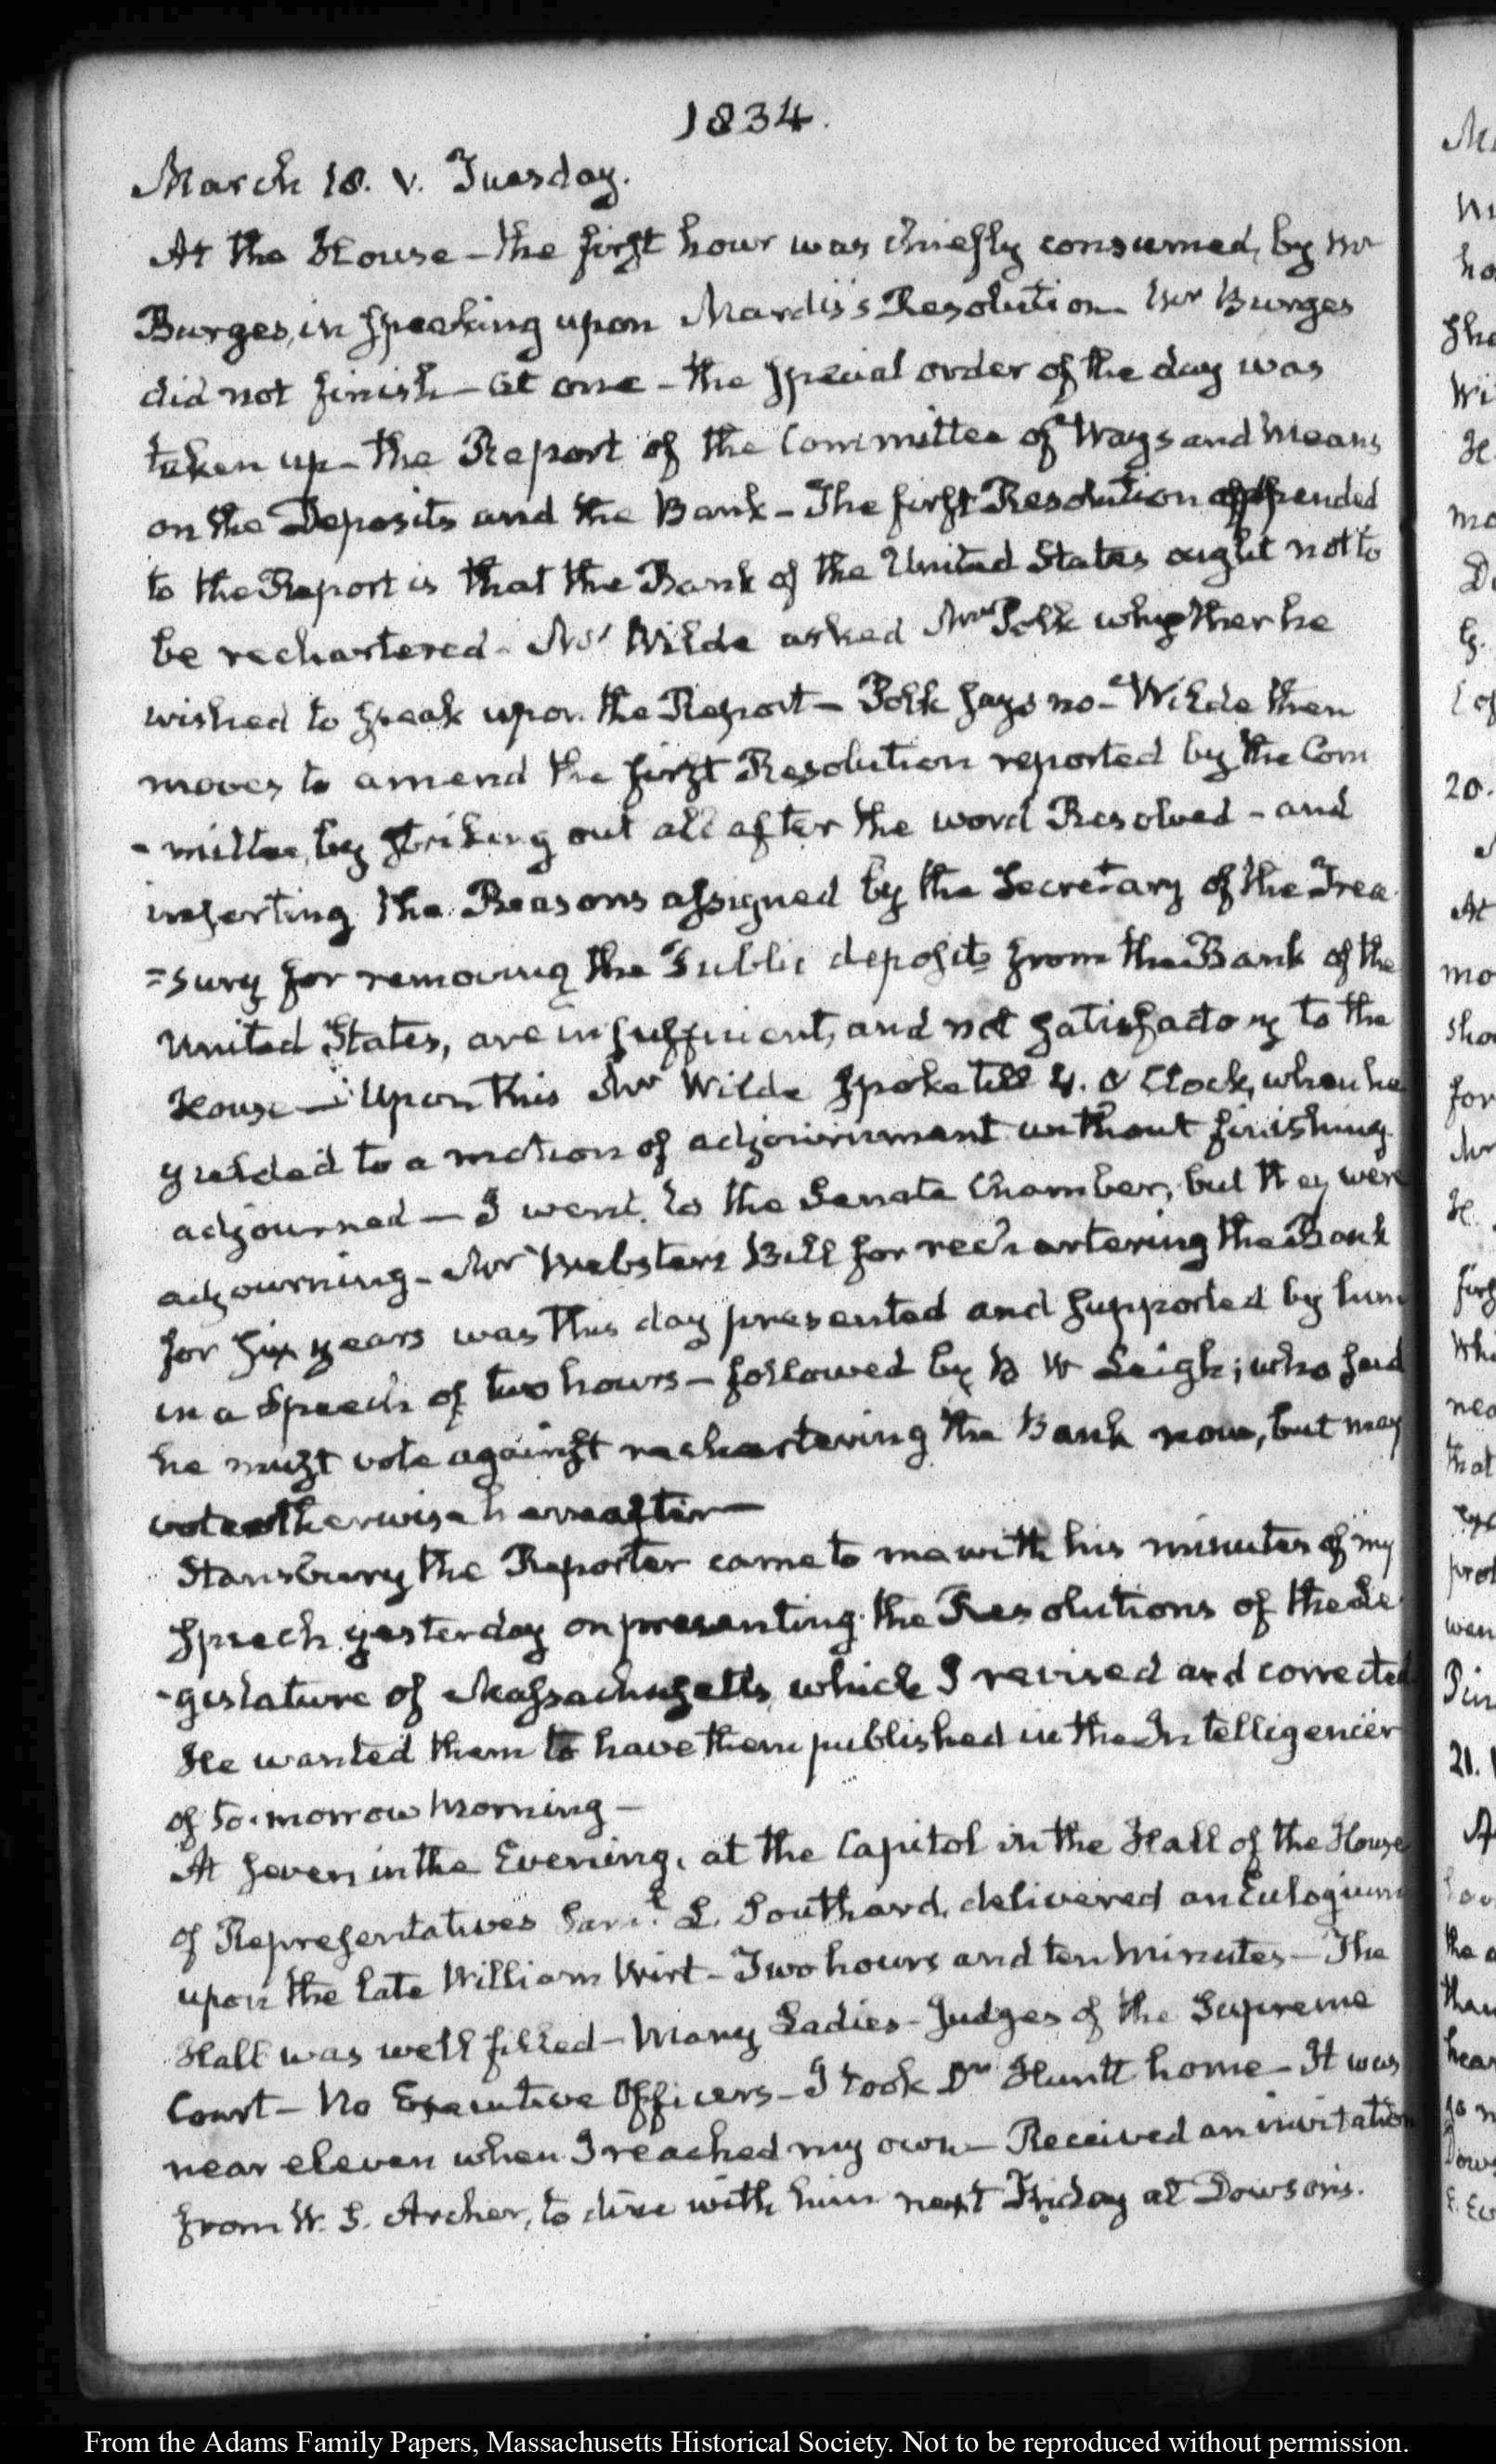 1834.
March 18. V. Tuesday.
At the House – the first hour was chiefly consumed, by Mr
Burges, in speaking upon Mardis's Resolution – Mr Burges
did not finish – At one – the special order of the day was
taken up – the Report of the Committee of Ways and Means
on the Deposits and the Bank – The first Resolution appended
to the Report is that the Bank of the United States ought not to
be rechartered – Mr Wilde asked Mr Polk whether he
wished to speak upon the Report – Polk says no – Wilde then
moves to amend the first Resolution reported by the Com
- mittee, by striking out all after the word Resolved – and
inserting the Reasons assigned by the Secretary of the Trea
=sury for removing the Public deposits from the Bank of the
United States, are insufficient, and not satisfactory to the
House – Upon this Mr Wilde spoke till 4. O'Clock, when he
yielded to a motion of adjournment without finishing
adjourned – I went to the Senate Chamber, but they were
adjourning – Mr Websters Bill for rechartering the Bank
for six years was this day presented and supported by him
in a Speech of two hours – followed by B W Leigh; who said
he must vote against rechartering the Bank now, but may
vote otherwise hereafter –
Stansbury the Reporter came to me with his minutes of my
speech yesterday on presenting the Resolutions of the Le
-gislature of Massachusetts, which I revised and corrected
He wanted them to have them published in the Intelligencer
of to-morrow Morning –
At seven in the Evening, at the Capitol in the Hall of the House
of Representatives Saml. L. Southard, delivered an Eulogium
upon the late William Wirt – Two hours and ten Minutes – The
Hall was well filled – Many Ladies – Judges of the Supreme
Court – No Executive Officers – I took Dr Huntt home – It was
near eleven when I reached my own – Received an invitation
from W. S. Archer, to dine with him next Friday at Dowson's.
20.
At
mo
for
21.
From the Adams Family Papers, Massachusetts Historical Society. Not to be reproduced without permission.